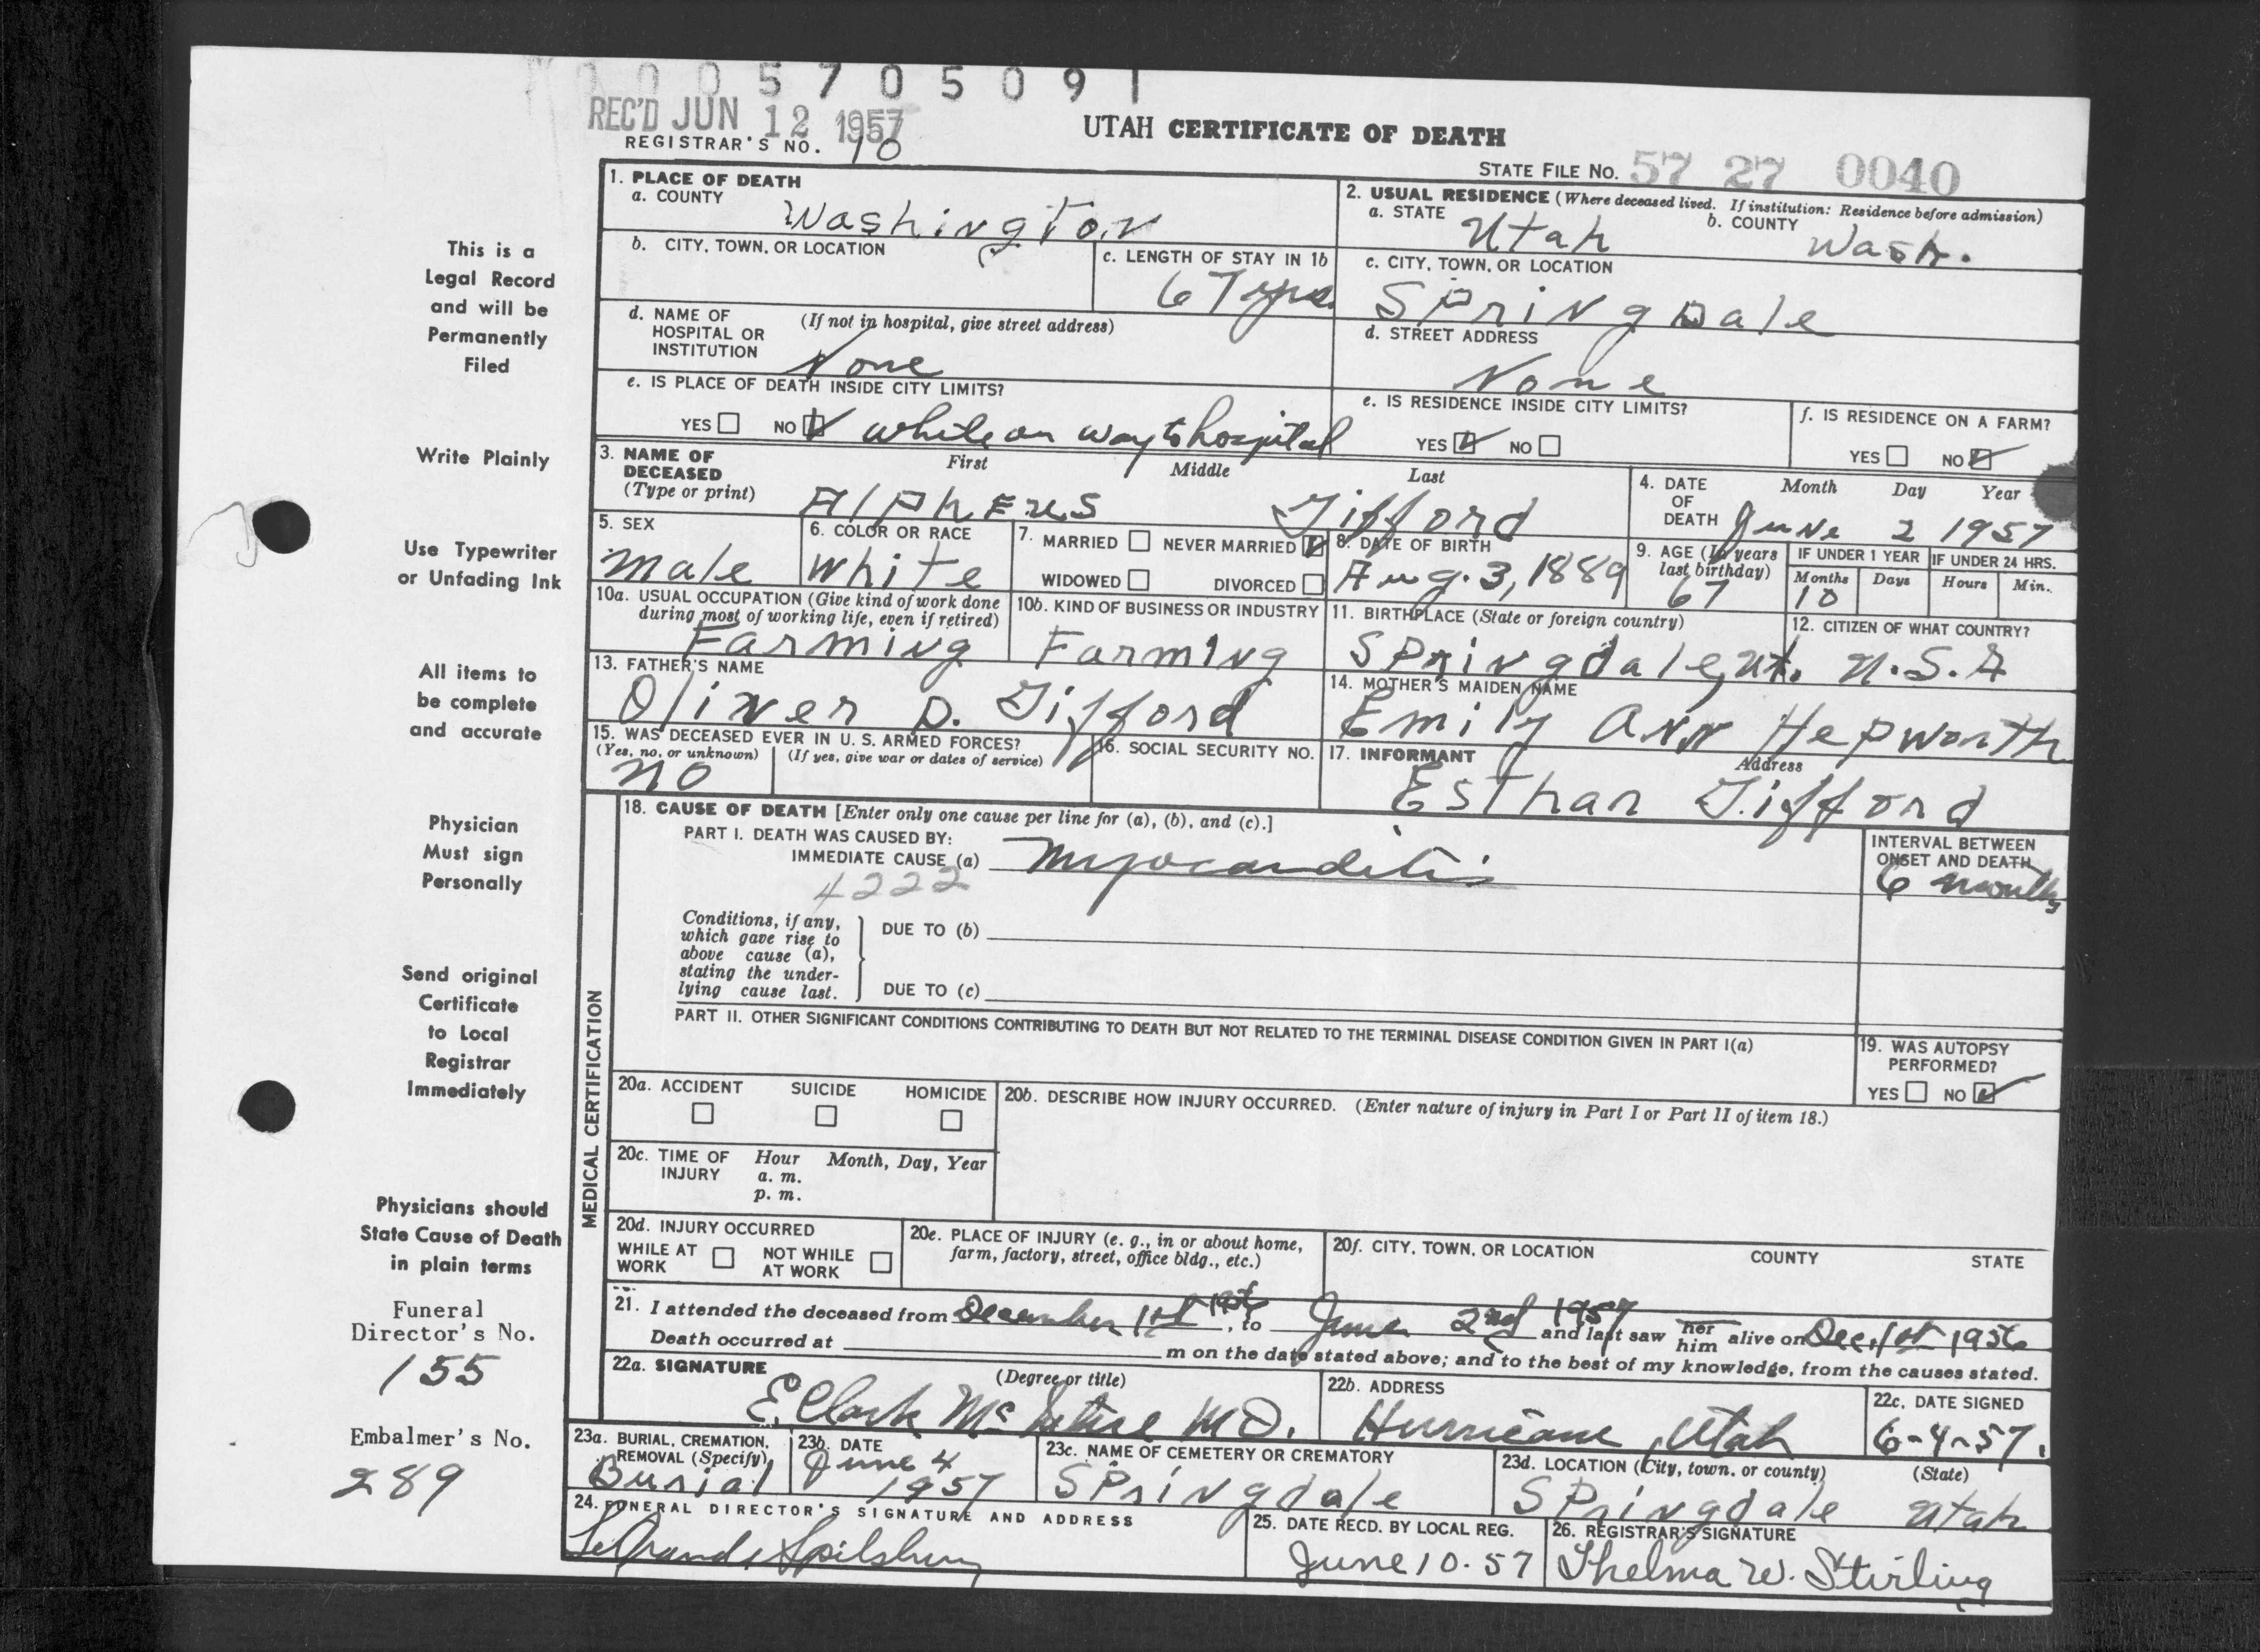 0 0 0 5 7 0 5 0 9 1
REC'D JUN 12 1957
UTAH CERTIFICATE OF DEATH
REGISTRAR'S NO. 10
STATE FILE NO. 57 27 0040
This is a
Legal Record
and will be
Permanently
Filed
Write Plainly
Use Typewriter
or Unfading Ink
All items to
be complete
and accurate
Physician
Must sign
Personally
Send original
Certificate
to Local
Registrar
Immediately
Physicians should
State Cause of Death
in plain terms
Funeral
Director's No.
155
Embalmer's No.
289
1. PLACE OF DEATH
a. COUNTY
Washington
2. USUAL RESIDENCE (Where deceased lived. If institution: Residence before admission)
a. STATE Utah b. COUNTY Wash.
b. CITY, TOWN, OR LOCATION
c. LENGTH OF STAY IN 1b
67 yrs.
c. CITY, TOWN, OR LOCATION
SPringDale
d. NAME OF (If not in hospital, give street address)
HOSPITAL OR
INSTITUTION None
d. STREET ADDRESS
None
e. IS PLACE OF DEATH INSIDE CITY LIMITS?
YES NO while on way to hospital
e. IS RESIDENCE INSIDE CITY LIMITS?
YES NO
f. IS RESIDENCE ON A FARM?
YES NO
3. NAME OF First Middle Last
DECEASED
(Type or print) AlPhEus Gifford
4. DATE Month Day Year
OF
DEATH June 2 1957
5. SEX
Male
6. COLOR OR RACE
White
7. MARRIED NEVER MARRIED
WIDOWED DIVORCED
8. DATE OF BIRTH
Aug. 3, 1889
9. AGE (In years
last birthday)
67
IF UNDER 1 YEAR IF UNDER 24 HRS.
Months Days Hours Min.
10
10a. USUAL OCCUPATION (Give kind of work done
during most of working life, even if retired)
Farming
10b. KIND OF BUSINESS OR INDUSTRY
Farming
11. BIRTHPLACE (State or foreign country)
SPringdale, Ut.
12. CITIZEN OF WHAT COUNTRY?
U.S.A
13. FATHER'S NAME
Oliver D. Gifford
14. MOTHER'S MAIDEN NAME
Emily Ann Hepworth
15. WAS DECEASED EVER IN U. S. ARMED FORCES?
(Yes, no, or unknown) (If yes, give war or dates of service)
no
16. SOCIAL SECURITY NO.
17. INFORMANT Address
Esthar Gifford
MEDICAL CERTIFICATION
18. CAUSE OF DEATH [Enter only one cause per line for (a), (b), and (c).]
PART I. DEATH WAS CAUSED BY:
IMMEDIATE CAUSE (a) Myocarditis
4222
INTERVAL BETWEEN
ONSET AND DEATH
6 months
Conditions, if any,
which gave rise to
above cause (a),
stating the under-
lying cause last.
DUE TO (b)
DUE TO (c)
PART II. OTHER SIGNIFICANT CONDITIONS CONTRIBUTING TO DEATH BUT NOT RELATED TO THE TERMINAL DISEASE CONDITION GIVEN IN PART I(a)
19. WAS AUTOPSY
PERFORMED?
YES NO
20a. ACCIDENT SUICIDE HOMICIDE
20b. DESCRIBE HOW INJURY OCCURRED. (Enter nature of injury in Part I or Part II of item 18.)
20c. TIME OF Hour Month, Day, Year
INJURY a. m.
p. m.
20d. INJURY OCCURRED
WHILE AT NOT WHILE
WORK AT WORK
20e. PLACE OF INJURY (e. g., in or about home,
farm, factory, street, office bldg., etc.)
20f. CITY, TOWN, OR LOCATION COUNTY STATE
21. I attended the deceased from December 1st 1956, to June 2nd 1957 and last saw her him alive on Dec. 1st 1956
Death occurred at m on the date stated above; and to the best of my knowledge, from the causes stated.
22a. SIGNATURE (Degree or title)
E. Clark McIntire MD.
22b. ADDRESS
Hurricane, Utah
22c. DATE SIGNED
6-4-57.
23a. BURIAL, CREMATION,
REMOVAL (Specify)
Burial
23b. DATE
June 4
1957
23c. NAME OF CEMETERY OR CREMATORY
SPringdale
23d. LOCATION (City, town, or county) (State)
SPringdale Utah
24. FUNERAL DIRECTOR'S SIGNATURE AND ADDRESS
LeGrand Spilsbury
25. DATE RECD. BY LOCAL REG.
June 10-57
26. REGISTRAR'S SIGNATURE
Thelma W. Stirling